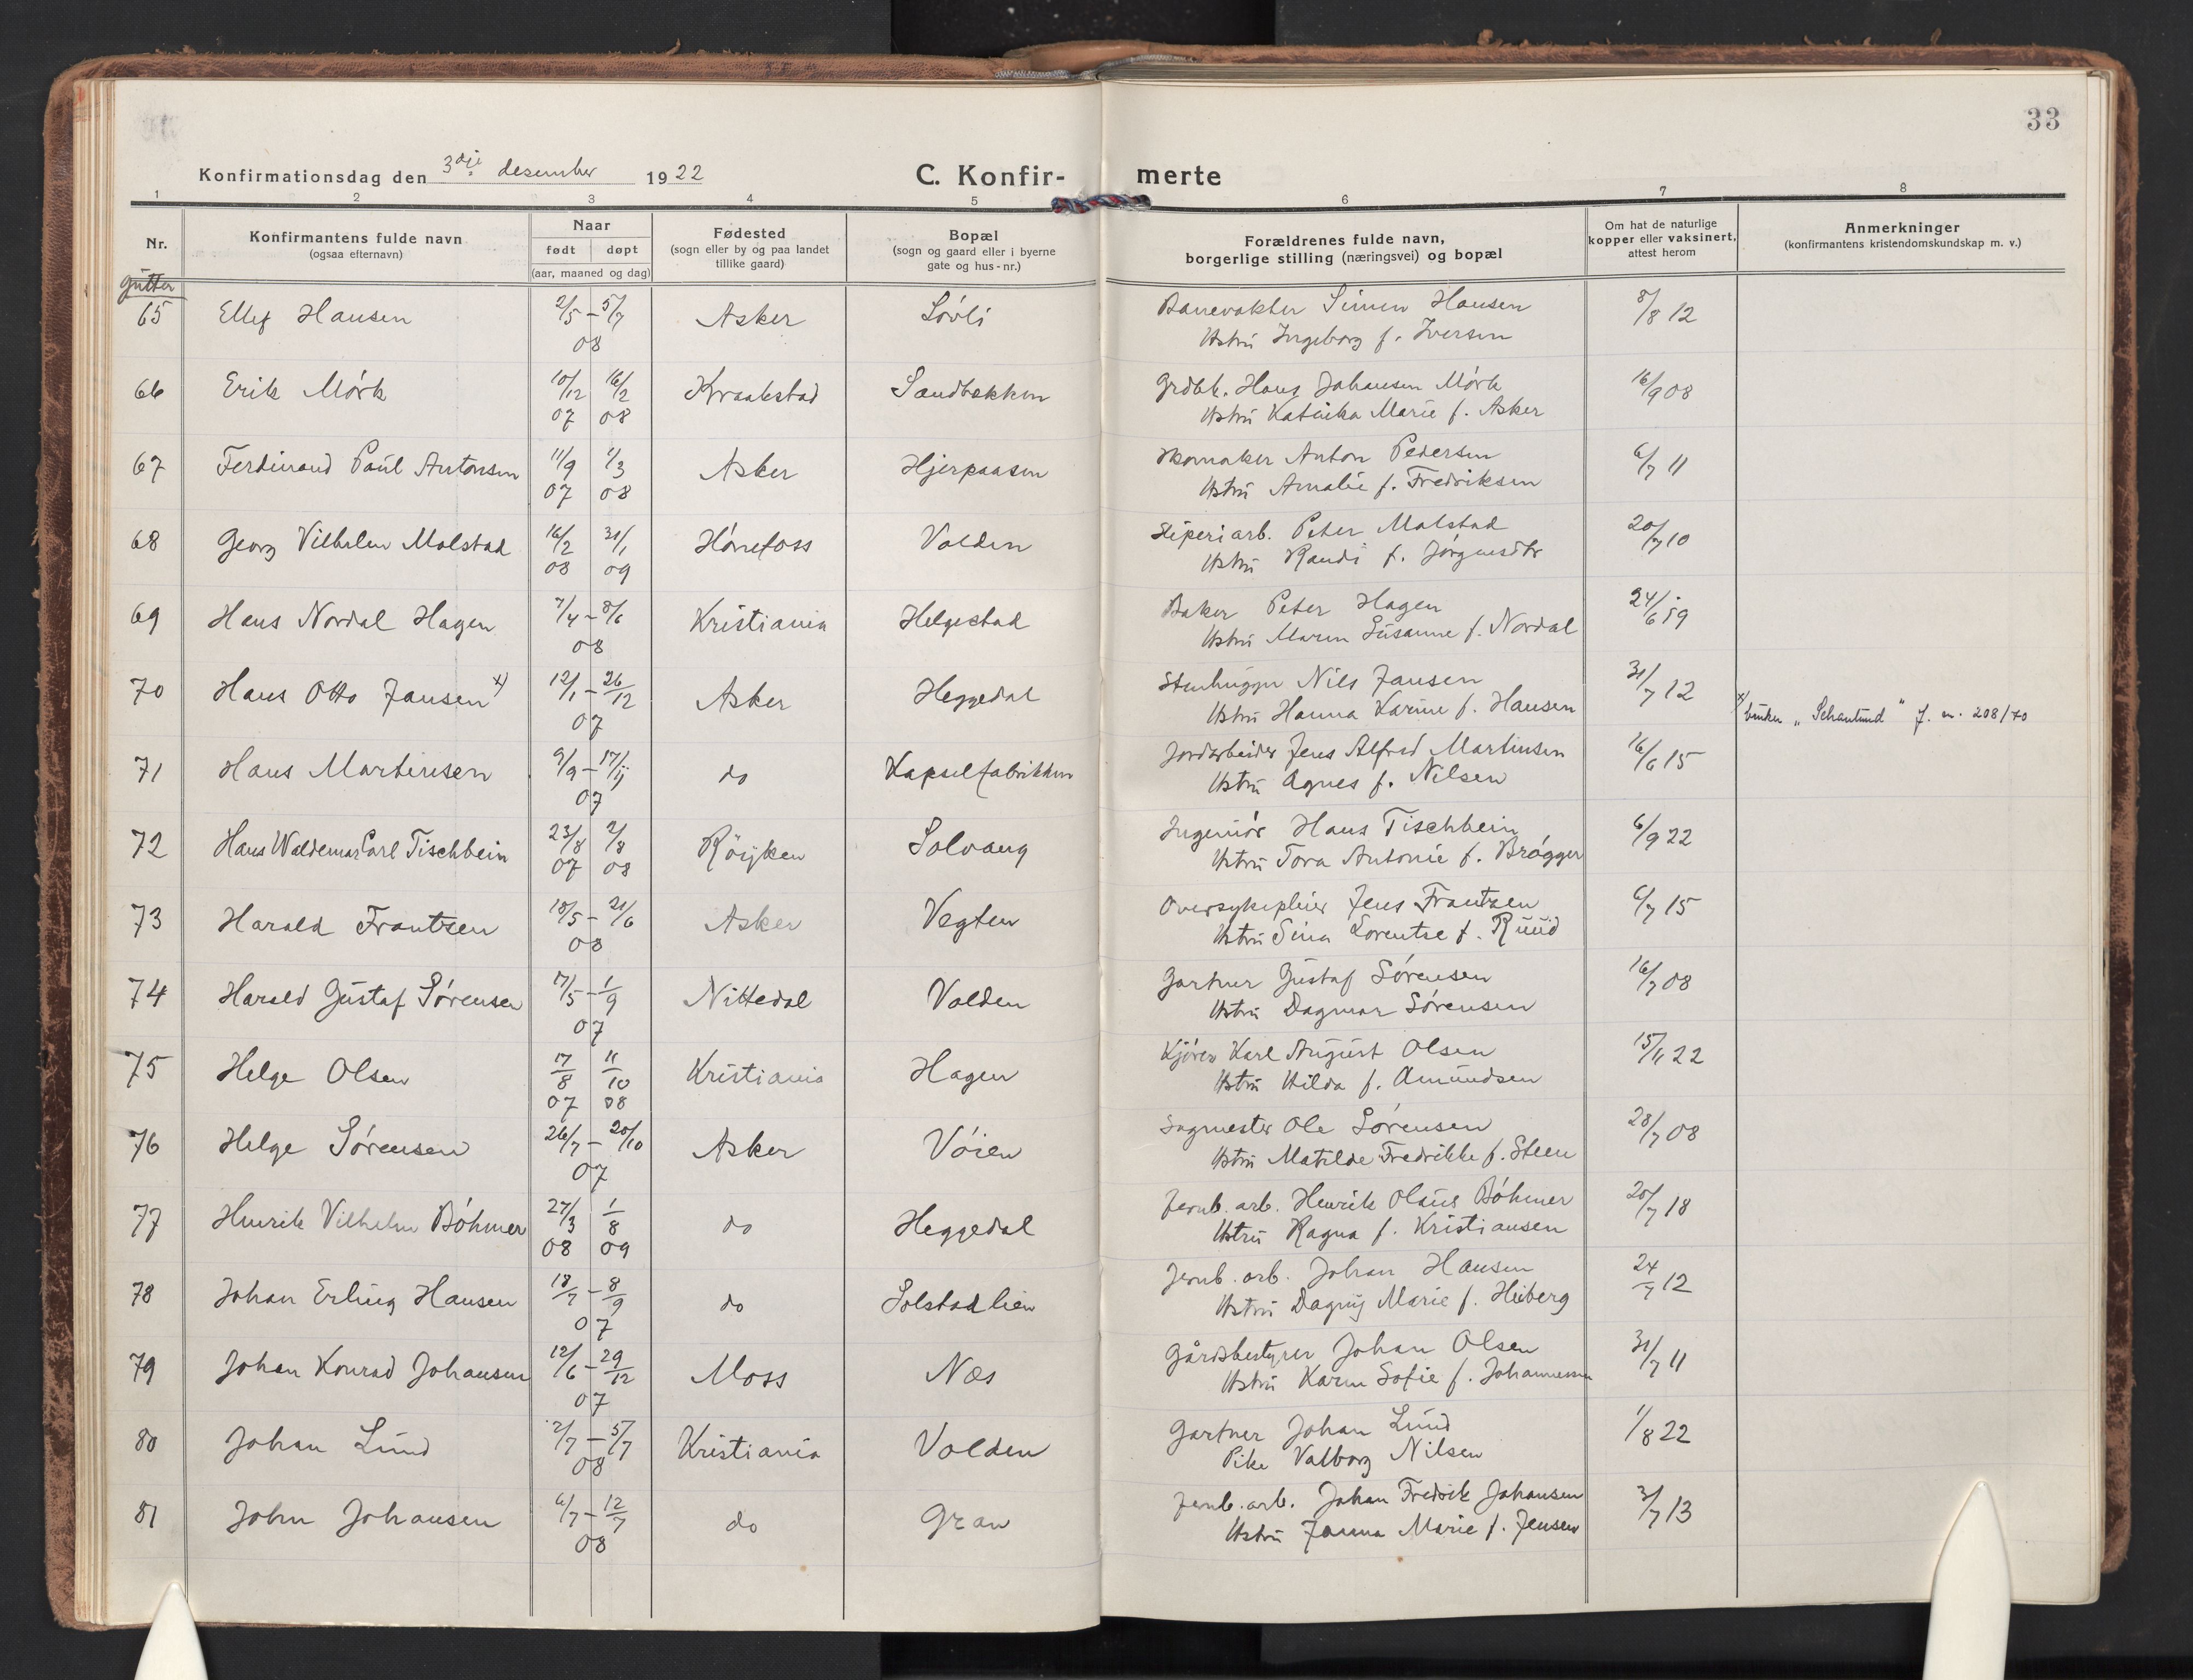 33
Konfirmationsdag den 3dje desember 1922
C. Konfir- merte
1 2 3 4 5 6 7 8
Nr.
Konfirmantens fulde navn
(ogsaa efternavn)
Naar
født døpt
(aar, maaned og dag)
Fødested
(sogn eller by og paa landet
tillike gaard)
Bopæl
(sogn og gaard eller i byerne
gate og hus-nr.)
Forældrenes fulde navn,
borgerlige stilling (næringsvei) og bopæl
Om hat de naturlige
kopper eller vaksinert,
attest herom
Anmerkninger
(konfirmantens kristendomskundskap m. v.)
Gutter
65 Ellef Hansen 2/5 – 5/7 08 Asker Løvli Banevokter Simen Hansen 8/8 12
Hstru Ingeborg f. Iversen
66 Erik Mørk 10/12 07 16/2 08 Kraakstad Sandbakken Grdbk. Hans Johansen Mørk 16/9 08
Hstru Katinka Marie f. Asker
67 Ferdinand Paul Antonsen 11/9 07 1/3 08 Asker Hjerpaasen Skomaker Anton Pedersen 6/7 11
Hstru Amalie f. Fredriksen
68 Georg Vilhelm Molstad 16/2 08 31/1 09 Hønefoss Volden Sliperiarb. Peter Molstad 20/7 10
Hstru Randi f. Jørgensdtr
69 Hans Nordal Hagen 7/4 – 8/6 08 Kristiania Helgestad Baker Peter Hagen 24/6 19
Hstru Maren Susanne f. Nordal
70 Hans Otto Jansen x) 12/1 – 26/12 07 Asker Heggedal Stenhugger Nils Jansen 31/7 12
Hstru Hanna Karine f. Hansen x) bruker „Schantund“ J. n. 208/40
71 Hans Martinsen 9/9 – 17/11 07 do Kapselfabrikken Jordarbeider Jens Alfred Martinsen 16/6 15
Hstru Agnes f. Nilsen
72 Hans Waldemar Carl Tischbein 23/8 07 2/8 08 Röyken Solvang Ingeniör Hans Tischbein 6/9 22
Hstru Tora Antonie f. Brøgger
73 Harald Frantzen 18/5 – 21/6 08 Asker Vegten Oversykepleier Jens Frantzen 6/7 15
Hstru Sina Lorentse f. Ruud
74 Harald Gustaf Sørensen 17/5 – 1/9 07 Nittedal Volden Gartner Gustaf Sørensen 16/7 08
Hstru Dagmar Sørensen
75 Helge Olsen 17/8 07 11/10 08 Kristiania Hagen Kjører Karl August Olsen 15/11 22
Hstru Hilda f. Amundsen
76 Helge Sørensen 26/7 – 20/10 07 Asker Vøien Sagmester Ole Sørensen 28/7 08
Hstru Matilde Fredrikke f. Steen
77 Henrik Vilhelm Bøhmer 27/3 08 1/8 09 do Heggedal Jernb. arb. Henrik Olaus Bøhmer 20/7 18
Hstru Ragna f. Kristiansen
78 Johan Erling Hansen 18/7 – 8/9 07 do Solstadlien Jernb. arb. Johan Hansen 24/7 12
Hstru Dagny Marie f. Heiberg
79 Johan Konrad Johansen 12/6 – 29/12 07 Moss Næs Gårdsbestyrer Johan Olsen 31/7 11
Hstru Karen Sofie f. Johannessen
80 Johan Lund 2/7 – 5/7 08 Kristiania Volden Gartner Johan Lund 1/8 22
Pike Valborg Nilsen
81 John Johansen 6/7 – 12/7 08 do Gran Jernb. arb. Johan Fredrik Johansen 3/7 13
Hstru Janna Marie f. Jensen